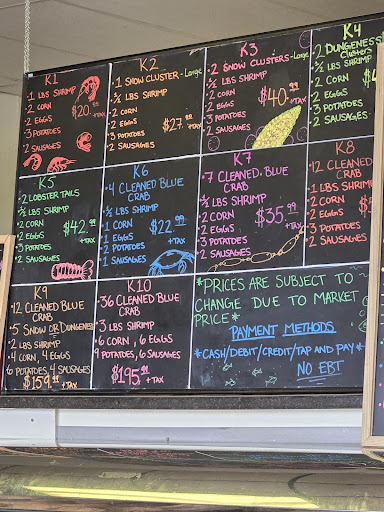 K1
1 LBS SHRIMP
2 CORN
2 EGGS
3 POTATOES
2 SAUSAGES
$20.99 +TAX
K2
1 SNOW CLUSTER - Large
1/2 LBS SHRIMP
2 CORN
2 EGGS
3 POTATOES
2 SAUSAGES
$27.99 +TAX
K3
2 SNOW CLUSTERS - Large
1/2 LBS SHRIMP
2 CORN
2 EGGS
3 POTATOES
2 SAUSAGES
$40.99 +TAX
K4
2 DUNGENESS
Clusters
1/2 LBS SHRIMP
2 CORN
2 EGGS
3 POTATOES
2 SAUSAGES
K5
2 LOBSTER TAILS
1/2 LBS SHRIMP
2 CORN
2 EGGS
3 POTATOES
2 SAUSAGES
$42.99 +TAX
K6
4 CLEANED BLUE
CRAB
1/2 LBS SHRIMP
1 CORN
1 EGGS
2 POTATOES
1 SAUSAGES
$22.99 +TAX
K7
7 CLEANED BLUE
CRAB
1/2 LBS SHRIMP
2 CORN
2 EGGS
3 POTATOES
2 SAUSAGES
$35.99 +TAX
K8
12 CLEANED
CRAB
1 LBS SHRIMP
2 CORN
2 EGGS
3 POTATOES
2 SAUSAGES
K9
12 CLEANED BLUE
CRAB
5 SNOW OR DUNGENESS
2 LBS SHRIMP
4 CORN, 4 EGGS
6 POTATOES, 4 SAUSAGES
$159.99 +TAX
K10
36 CLEANED BLUE
CRAB
3 LBS SHRIMP
6 CORN, 6 EGGS
9 POTATOES, 6 SAUSAGES
$195.99 +TAX
*PRICES ARE SUBJECT TO
CHANGE DUE TO MARKET
PRICE*
PAYMENT METHODS
*CASH/DEBIT/CREDIT/TAP AND PAY*
NO EBT